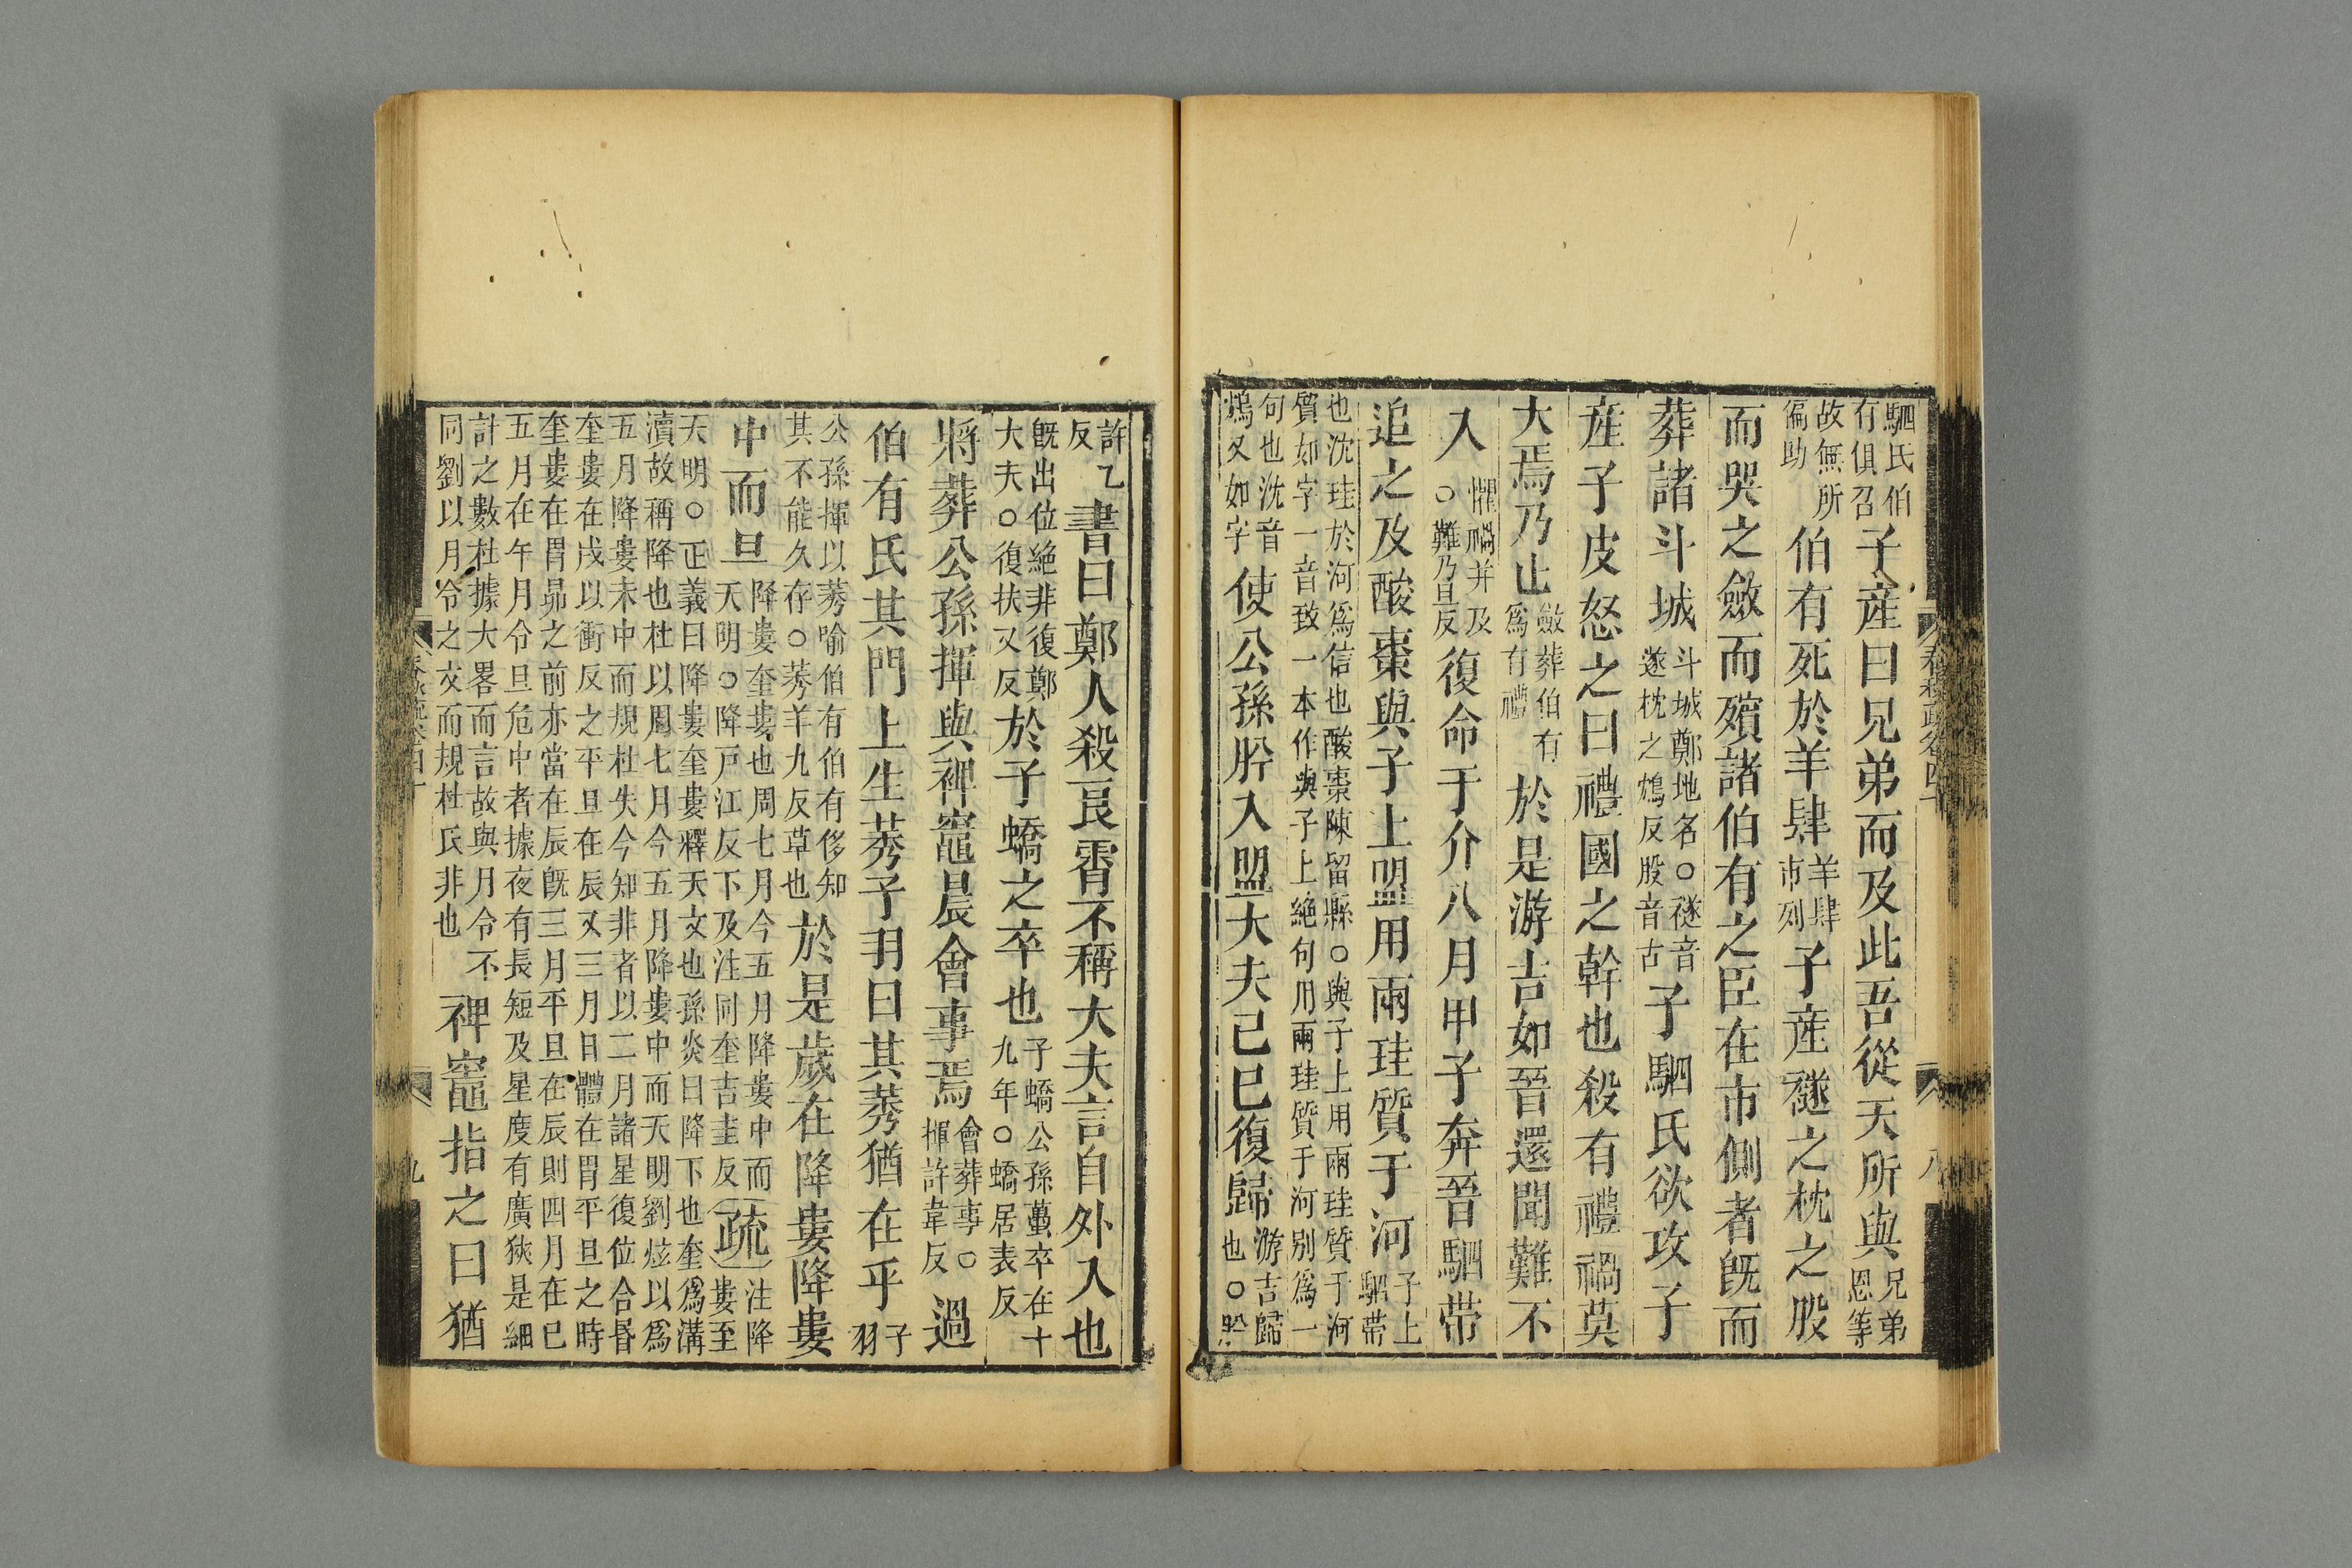 駟氏伯有俱召子產曰兄弟而及此吾從天所與兄弟恩等
故無所偏助伯有死於羊肆羊肆市列子產襚之枕之股
而哭之斂而殯諸伯有之臣在市側者旣而
葬諸斗城斗城鄭地名○襚音遂枕之鴆反股音古子駟氏欲攻子
產子皮怒之曰禮國之幹也殺有禮禍莫
大焉乃止斂葬伯有爲有禮於是游吉如晉還聞難不
入懼禍并及○難乃旦反復命于介八月甲子奔晉駟帶
追之及酸棗與子上盟用兩珪質于河子上駟帶
也沈珪於河爲信也酸棗陳留縣○與子上用兩珪質于河
質如字一音致一本作與子上絕句用兩珪質于河別爲一
句也沈音鴆又如字使公孫肸入盟大夫己巳復歸游吉歸也○肸
許乙反書曰鄭人殺良霄不稱大夫言自外入也
旣出位絕非復鄭大夫○復扶又反於子蟜之卒也子蟜公孫蠆卒在十九年○蟜居表反
將葬公孫揮與裨竈晨會事焉會葬事○揮許韋反過
伯有氏其門上生莠子羽曰其莠猶在乎子羽
公孫揮以莠喻伯有伯有侈知其不能久存○莠羊九反草也於是歲在降婁降婁
中而旦降婁奎婁也周七月今五月降婁中而天明○降戸江反下及注同奎吉圭反疏注降婁至
天明○正義曰降婁奎婁釋天文也孫炎曰降下也奎爲溝
瀆故稱降也杜以周七月今五月降婁中而天明劉炫以爲
五月降婁未中而規杜失今知非者以二月諸星復位合昬
奎婁在戌以衝反之平旦在辰又三月日體在胃平旦之時
奎婁在胃昴之前亦當在辰旣三月平旦在辰則四月在巳
五月在午月令旦危中者據夜有長短及星度有廣狹是細
計之數杜據大畧而言故與月令不
同劉以月令之文而規杜氏非也裨竈指之曰猶